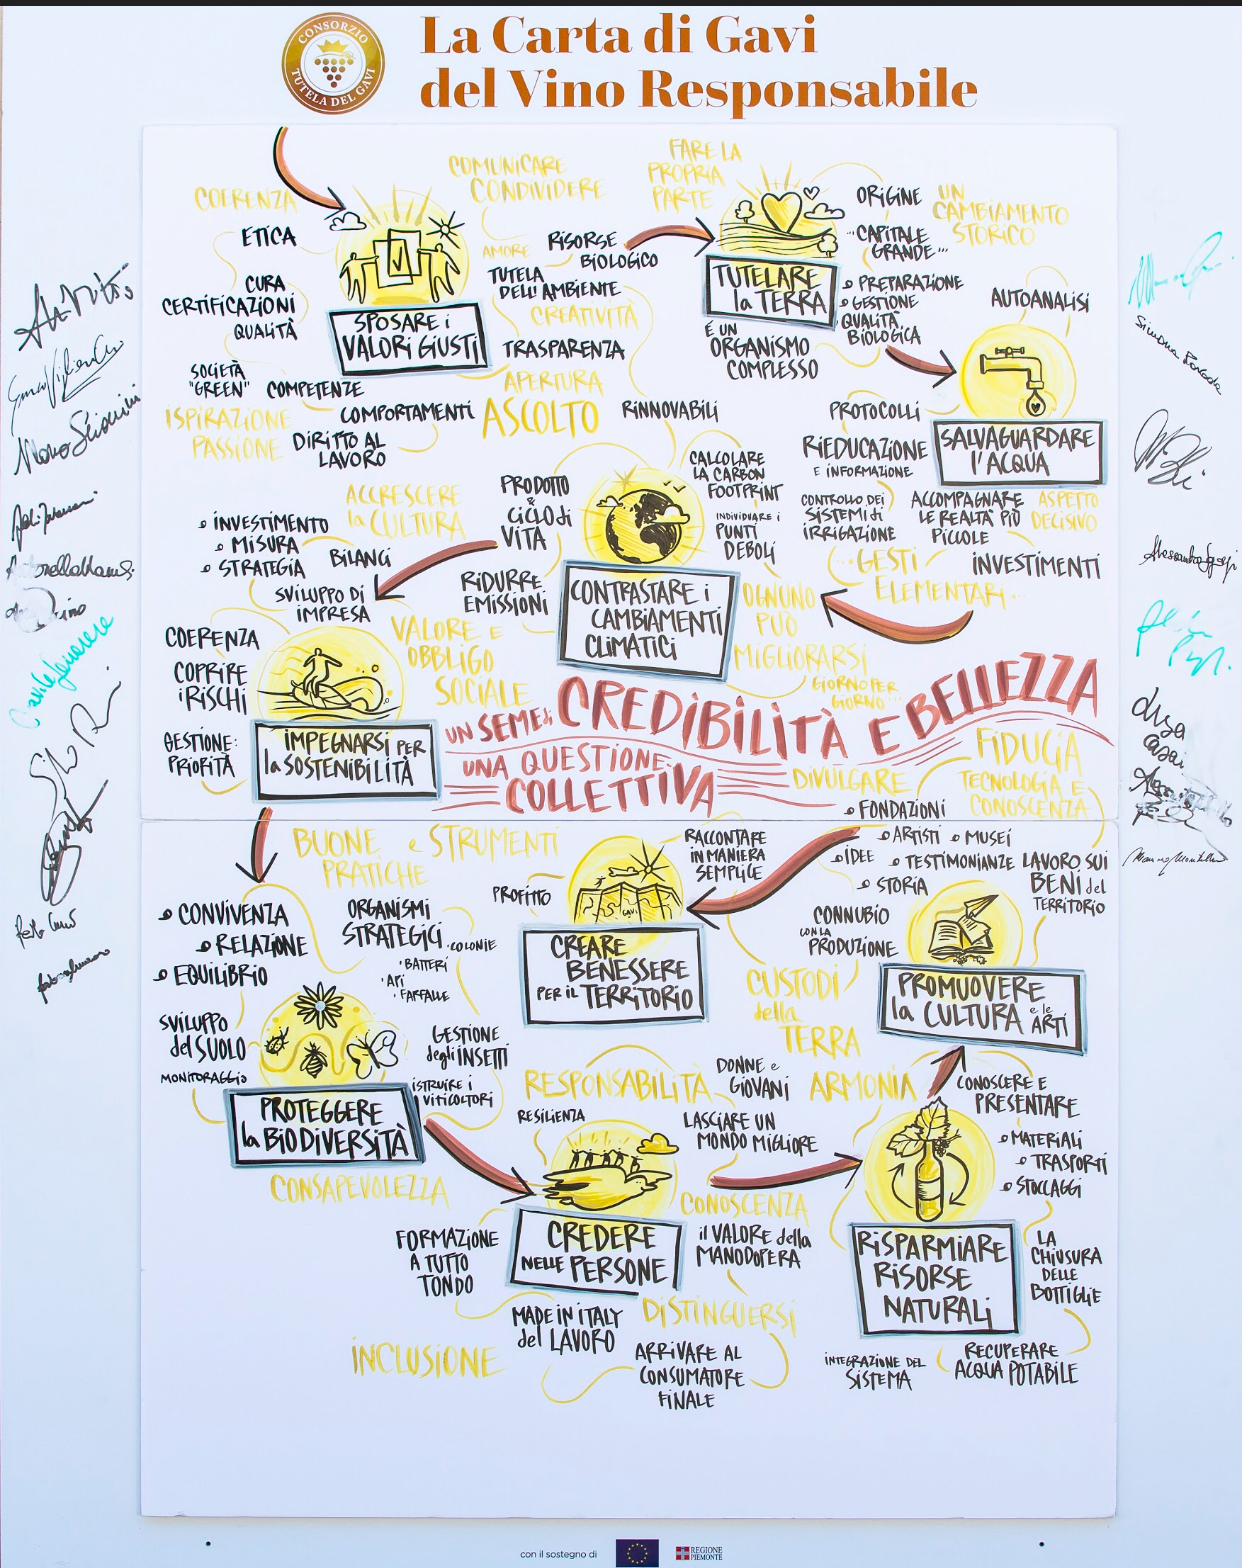 CONSORZIO
TUTELA DEL GAVI
La Carta di Gavi
del Vino Responsabile
COERENZA
ETICA
CURA
CERTIFICAZIONI
QUALITÀ
SPOSARE i
VALORI GIUSTI
COMUNICARE
CONDIVIDERE
AMORE
RISORSE
BIOLOGICO
TUTELA
DELL'AMBIENTE
CREATIVITÀ
TRASPARENZA
APERTURA
ASCOLTO
SOCIETÀ
"GREEN"
COMPETENZE
COMPORTAMENTI
ISPIRAZIONE
PASSIONE
DIRITTO AL
LAVORO
FARE LA
PROPRIA
PARTE
TUTELARE
la TERRA
ORIGINE
UN
CAMBIAMENTO
STORICO
"CAPITALE
GRANDE"...
PREPARAZIONE
GESTIONE
QUALITÀ
BIOLOGICA
È UN
ORGANISMO
COMPLESSO
AUTOANALISI
SALVAGUARDARE
l'ACQUA
PROTOCOLLI
RIEDUCAZIONE
E INFORMAZIONE
CONTROLLO DEI
SISTEMI di
IRRIGAZIONE
ACCOMPAGNARE
LE REALTÀ PIÙ
PICCOLE
ASPETTO
DECISIVO
INVESTIMENTI
...GESTI
ELEMENTARI...
RINNOVABILI
CALCOLARE
LA CARBON
FOOTPRINT
INDIVIDUARE i
PUNTI
DEBOLI
PRODOTTO
&
CICLO di
VITA
RIDURRE
EMISSIONI
CONTRASTARE i
CAMBIAMENTI
CLIMATICI
OGNUNO
PUÒ
MIGLIORARSI
GIORNO PER
GIORNO...
ACCRESCERE
la CULTURA
INVESTIMENTO
MISURA
STRATEGIA
BILANCI
SVILUPPO DI
IMPRESA
VALORE E
OBBLIGO
SOCIALE
COERENZA
COPRIRE
i RISCHI
GESTIONE:
PRIORITÀ
IMPEGNARSI PER
la SOSTENIBILITÀ
UN SEME di CREDIBILITÀ E BELLEZZA
UNA QUESTIONE
COLLETTIVA
DIVULGARE
FIDUCIA
TECNOLOGIA E
CONOSCENZA
BUONE e STRUMENTI
PRATICHE
CONVIVENZA
RELAZIONE
EQUILIBRIO
ORGANISMI
STRATEGICI
COLONIE
BATTERI
API
FARFALLE
SVILUPPO
del SUOLO
MONITORAGGIO
GESTIONE
degli INSETTI
ISTRUIRE i
VITICOLTORI
PROTEGGERE
la BIODIVERSITÀ
CONSAPEVOLEZZA
PROFITTO
RACCONTARE
IN MANIERA
SEMPLICE
GAVI
CREARE
BENESSERE
PER il TERRITORIO
FONDAZIONI
ARTISTI
MUSEI
IDEE
TESTIMONIANZE
STORIA
LAVORO SUI
BENI del
TERRITORIO
CONNUBIO
CON LA
PRODUZIONE
PROMUOVERE
la CULTURA e le
ARTI
CUSTODI
della
TERRA
RESPONSABILITÀ
RESILIENZA
DONNE e
GIOVANI
LASCIARE UN
MONDO MIGLIORE
ARMONIA
CONOSCERE E
PRESENTARE
MATERIALI
TRASPORTI
STOCCAGGI
CREDERE
NELLE PERSONE
CONOSCENZA
il VALORE della
MANODOPERA
FORMAZIONE
A TUTTO
TONDO
MADE IN ITALY
del LAVORO
DISTINGUERSI
INCLUSIONE
ARRIVARE AL
CONSUMATORE
FINALE
RISPARMIARE
RISORSE
NATURALI
LA
CHIUSURA
DELLE
BOTTIGLIE
INTEGRAZIONE DEL
SISTEMA
RECUPERARE
ACQUA POTABILE
con il sostegno di
REGIONE
PIEMONTE